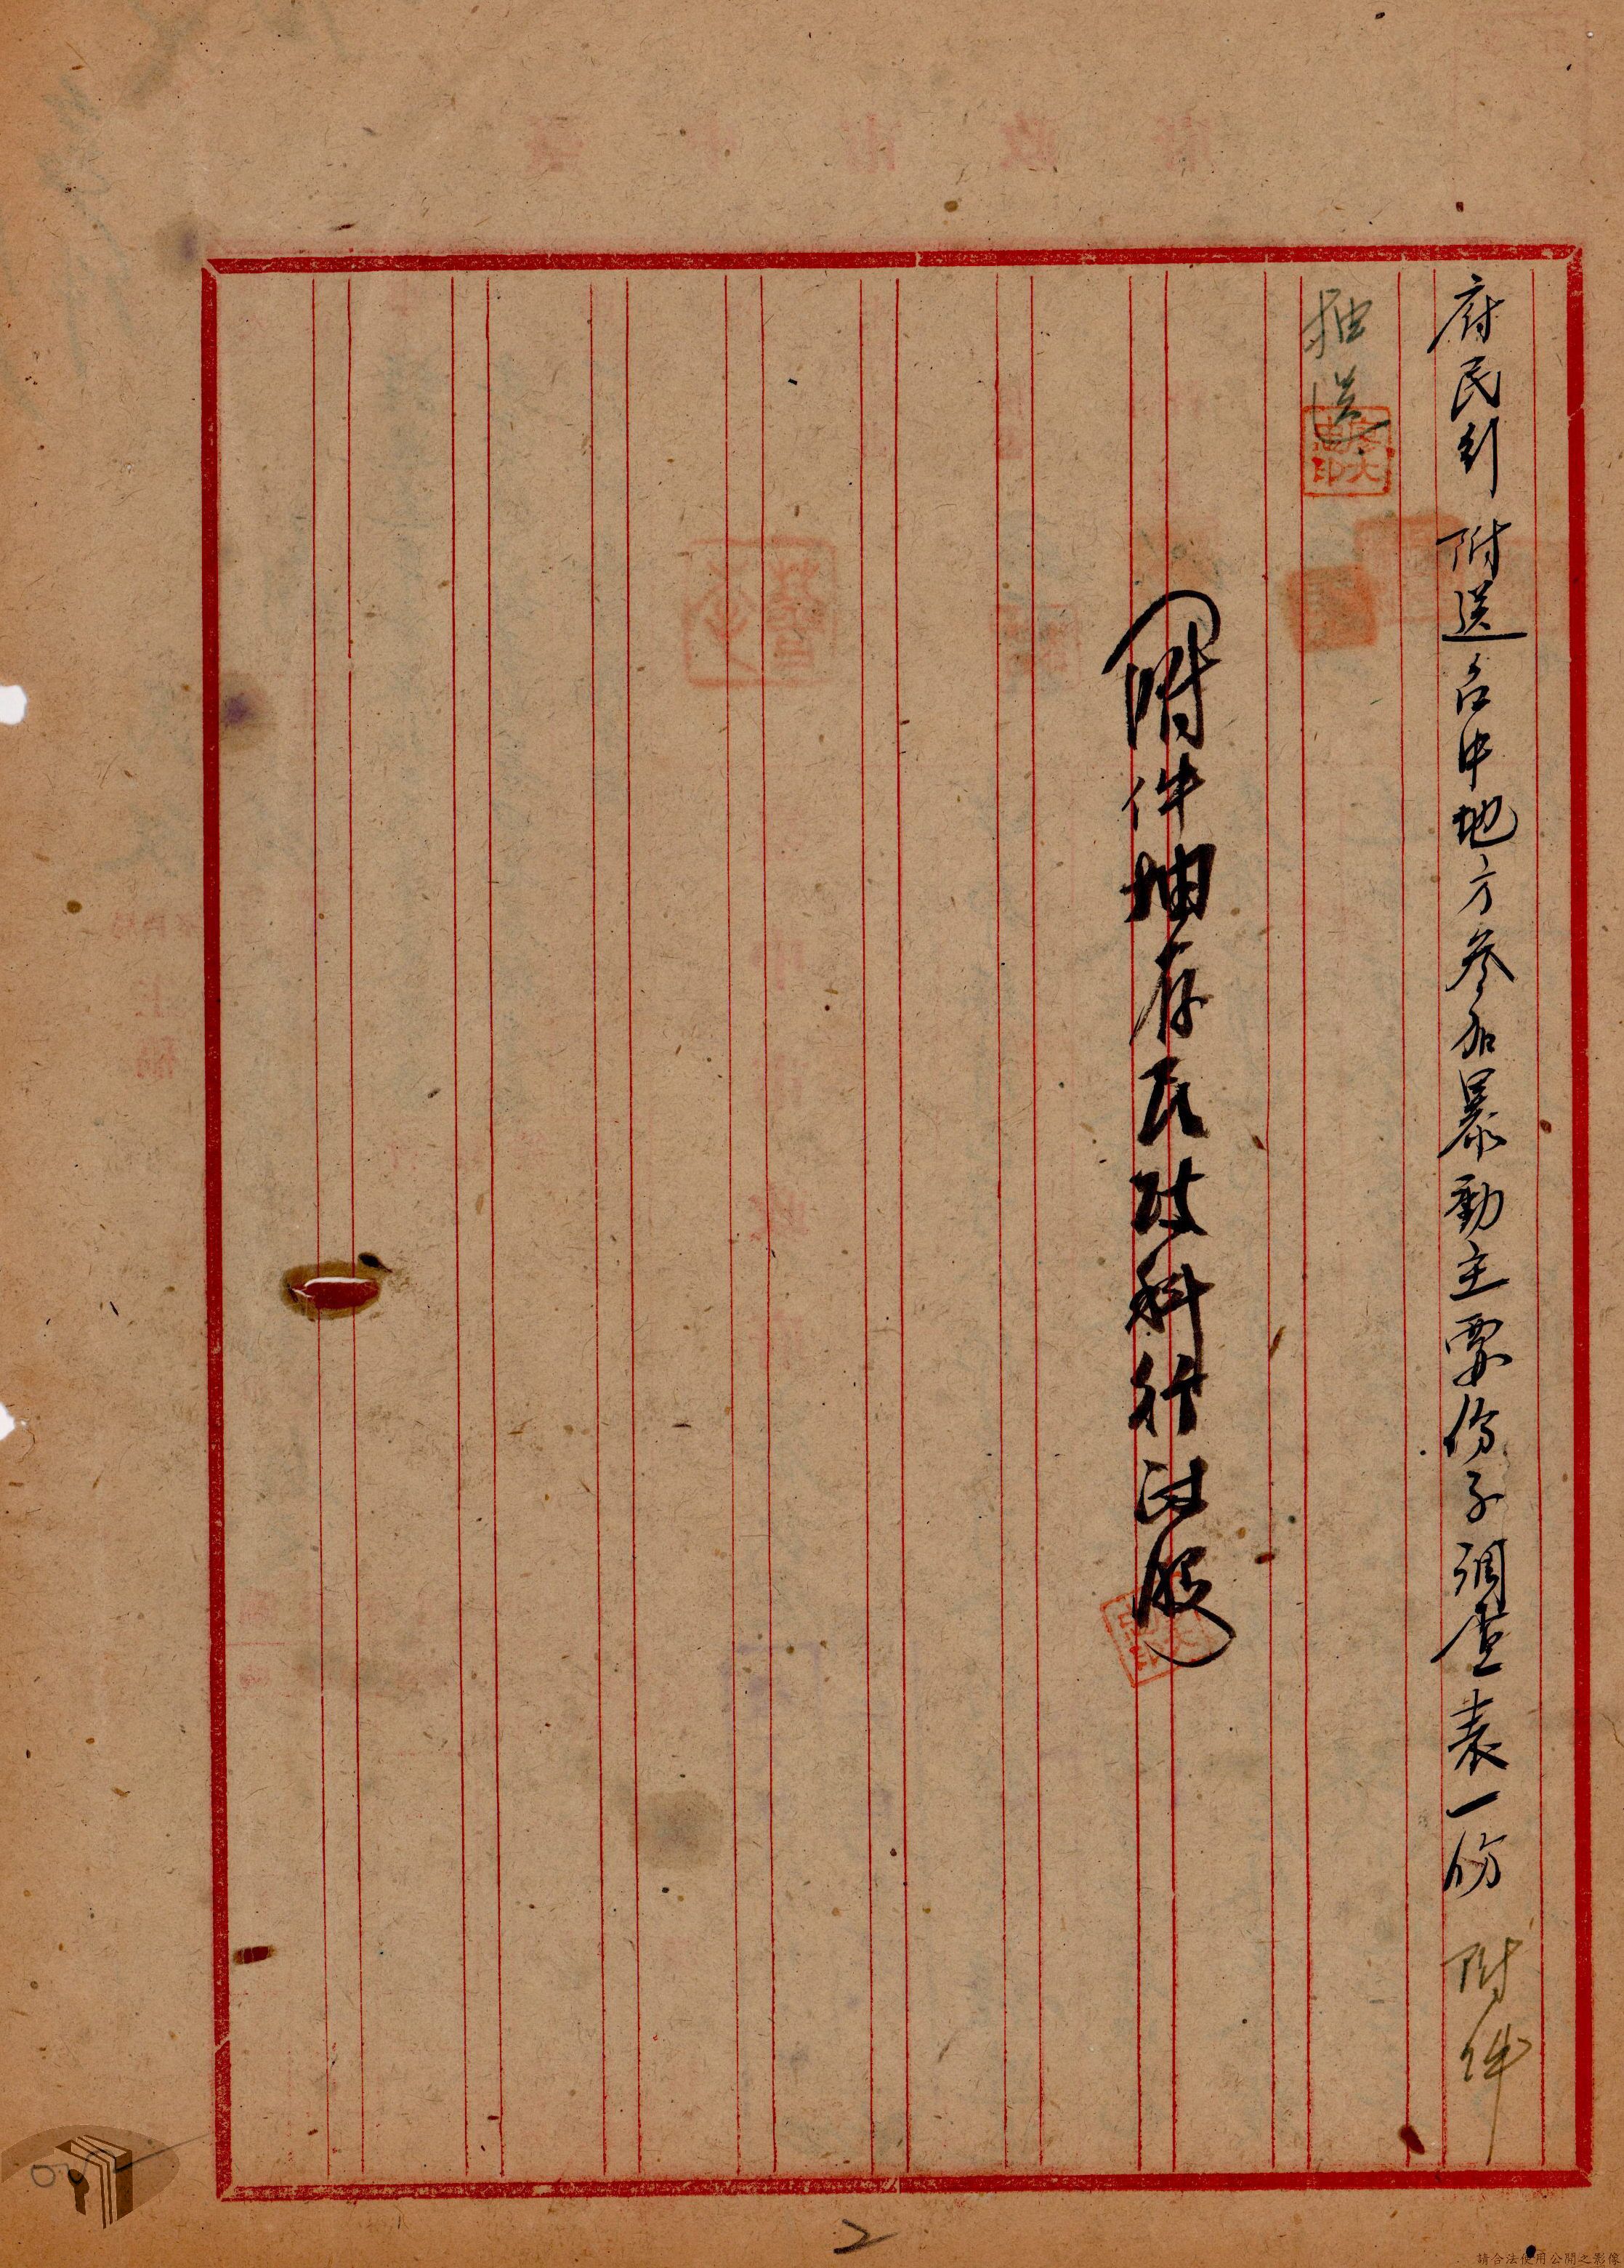 府民到 附送台中地方參加暴動主要份子調查表一份 附件
抽送
（附件抽存民政科行政股）
2
請合法使用公開之影像